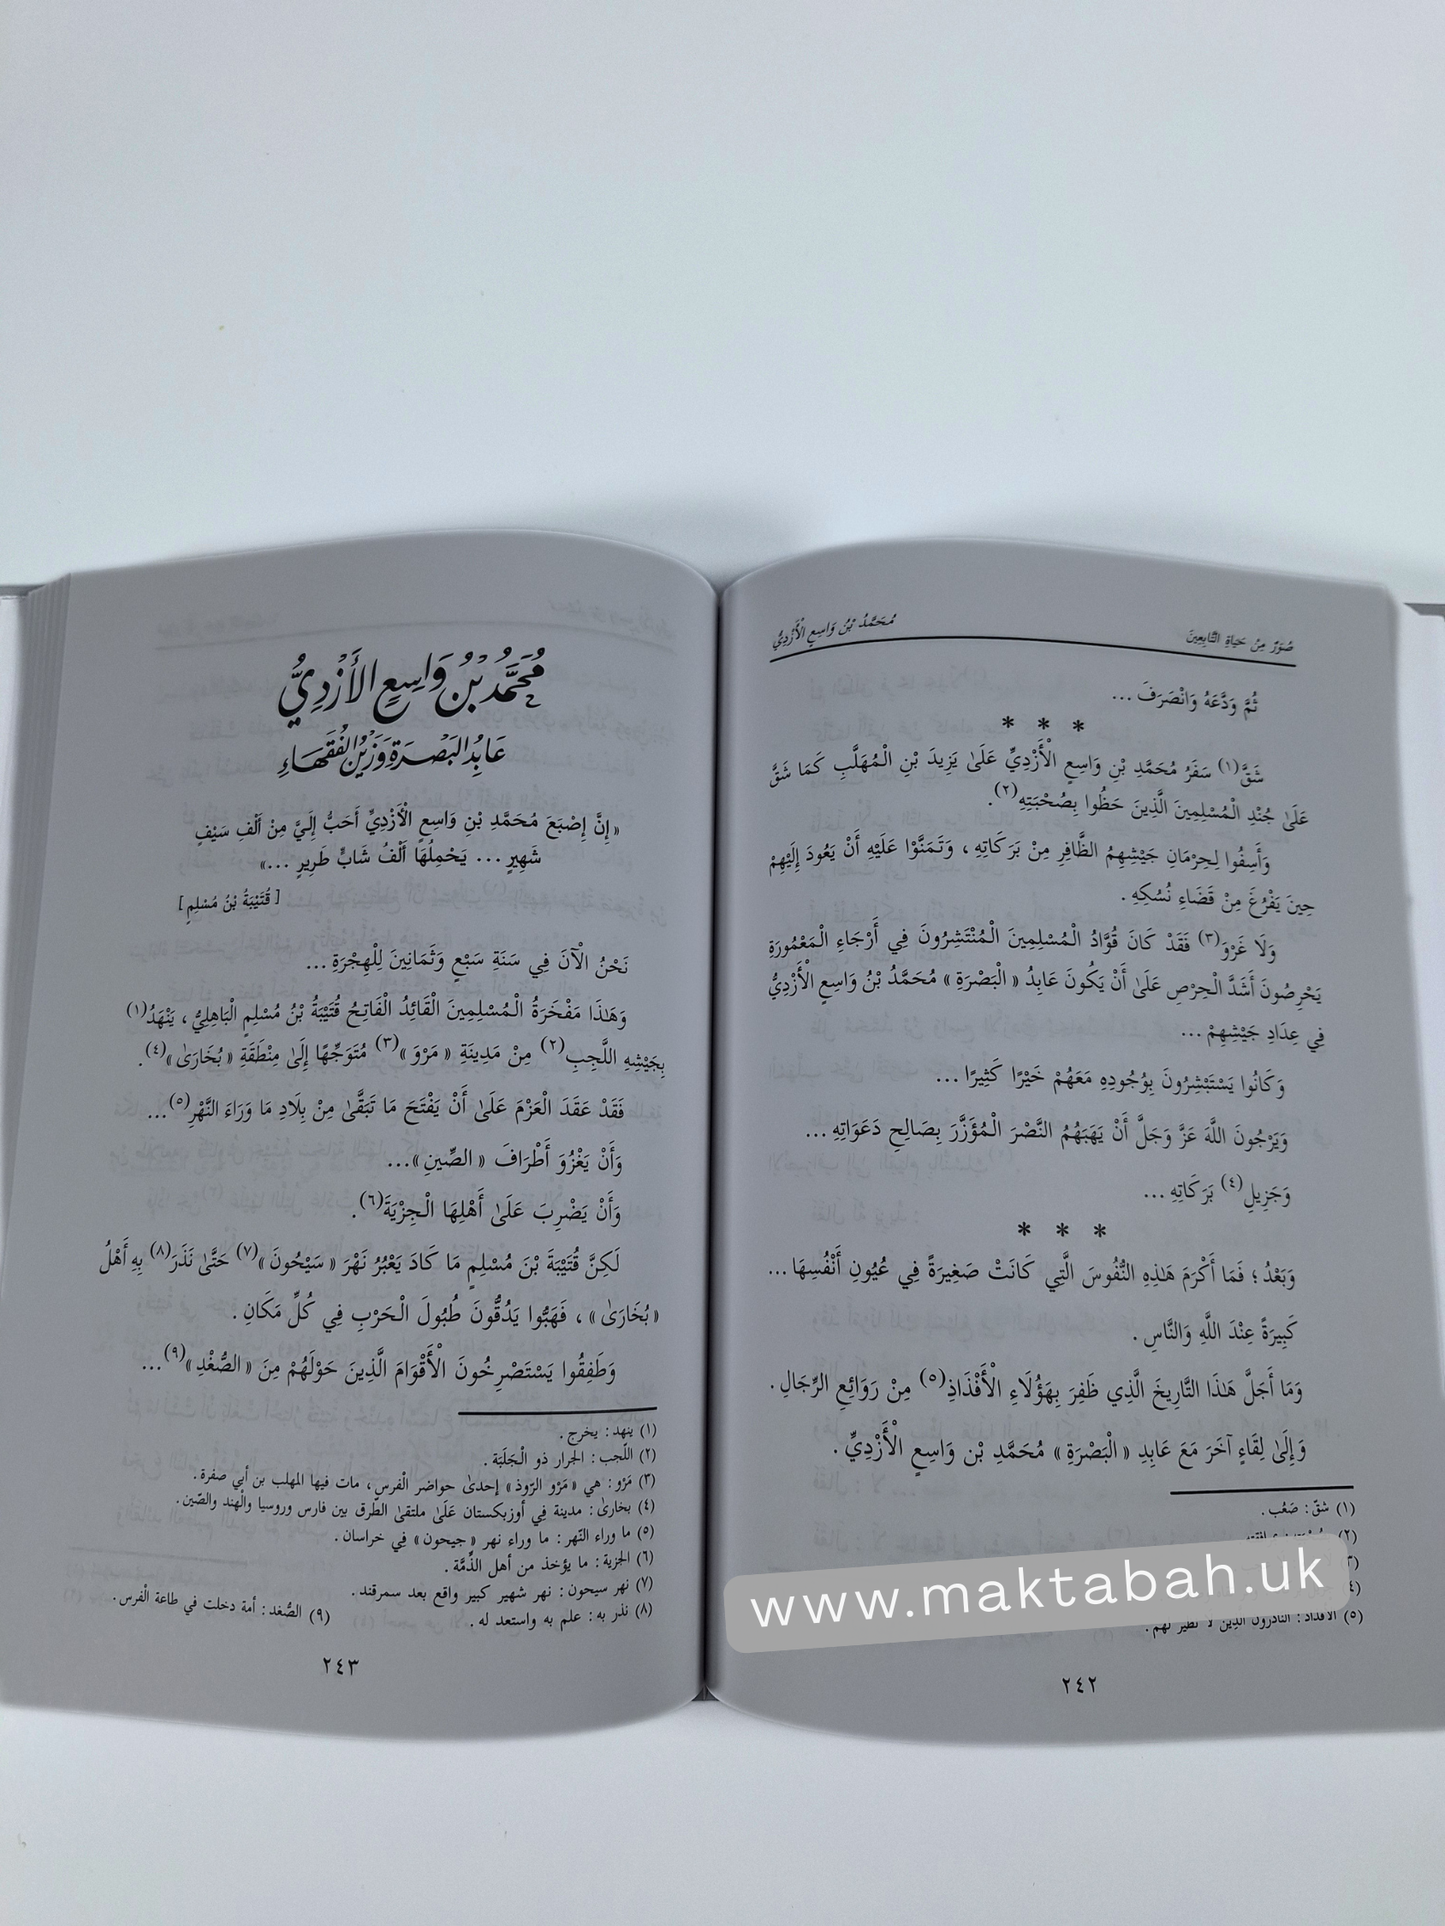 صُوَرٌ مِنْ حَيَاةِ التَّابِعِينَ
مُحَمَّدُ بْنُ وَاسِعٍ الْأَزْدِيُّ
ثُمَّ وَدَّعَهُ وَانْصَرَفَ ...
* * *
شَقَّ(١) سَفَرُ مُحَمَّدِ بْنِ وَاسِعٍ الْأَزْدِيِّ عَلَىٰ يَزِيدَ بْنِ الْمُهَلَّبِ كَمَا شَقَّ
عَلَىٰ جُنْدِ الْمُسْلِمِينَ الَّذِينَ حَظُوا بِصُحْبَتِهِ(٢).
وَأَسِفُوا لِحِرْمَانِ جَيْشِهِمُ الظَّافِرِ مِنْ بَرَكَاتِهِ ، وَتَمَنَّوْا عَلَيْهِ أَنْ يَعُودَ إِلَيْهِمْ
حِينَ يَفْرُغُ مِنْ قَضَاءِ نُسُكِهِ .
وَلَا غَرْوَ(٣) فَقَدْ كَانَ قُوَّادُ الْمُسْلِمِينَ الْمُنْتَشِرُونَ فِي أَرْجَاءِ الْمَعْمُورَةِ
يَحْرِصُونَ أَشَدَّ الْحِرْصِ عَلَىٰ أَنْ يَكُونَ عَابِدُ « الْبَصْرَةِ » مُحَمَّدُ بْنُ وَاسِعٍ الْأَزْدِيُّ
فِي عِدَادِ جَيْشِهِمْ ...
وَكَانُوا يَسْتَبْشِرُونَ بِوُجُودِهِ مَعَهُمْ خَيْرًا كَثِيرًا ...
وَيَرْجُونَ اللَّهَ عَزَّ وَجَلَّ أَنْ يَهَبَهُمُ النَّصْرَ الْمُؤَزَّرَ بِصَالِحِ دَعَوَاتِهِ ...
وَجَزِيلِ(٤) بَرَكَاتِهِ ...
* * *
وَبَعْدُ ؛ فَمَا أَكْرَمَ هَٰذِهِ النُّفُوسَ الَّتِي كَانَتْ صَغِيرَةً فِي عُيُونِ أَنْفُسِهَا ...
كَبِيرَةً عِنْدَ اللَّهِ وَالنَّاسِ .
وَمَا أَجَلَّ هَٰذَا التَّارِيخَ الَّذِي ظَفِرَ بِهَؤُلَاءِ الْأَفْذَاذِ(٥) مِنْ رَوَائِعِ الرِّجَالِ .
وَإِلَىٰ لِقَاءٍ آخَرَ مَعَ عَابِدِ « الْبَصْرَةِ » مُحَمَّدِ بْنِ وَاسِعٍ الْأَزْدِيِّ .
(١) شقّ : صَعُب .
(٢)
(٣)
(٤)
(٥) الأفذاذ : النادرون الذين لا نظير لهم .
٢٤٢
www.maktabah.uk
مُحَمَّدُ بْنُ وَاسِعٍ الأَزْدِيُّ
عَابِدُ الْبَصْرَةِ وَزَيْنُ الْفُقَهَاءِ
« إِنَّ إِصْبَعَ مُحَمَّدِ بْنِ وَاسِعٍ الْأَزْدِيِّ أَحَبُّ إِلَيَّ مِنْ أَلْفِ سَيْفٍ
شَهِيرٍ ... يَحْمِلُهَا أَلْفُ شَابٍّ طَرِيرٍ ...»
[ قُتَيْبَةُ بْنُ مُسْلِمٍ ]
نَحْنُ الْآنَ فِي سَنَةِ سَبْعٍ وَثَمَانِينَ لِلْهِجْرَةِ ...
وَهَٰذَا مَفْخَرَةُ الْمُسْلِمِينَ الْقَائِدُ الْفَاتِحُ قُتَيْبَةُ بْنُ مُسْلِمٍ الْبَاهِلِيُّ ، يَنْهَدُ(١)
بِجَيْشِهِ اللَّجِبِ(٢) مِنْ مَدِينَةِ « مَرْوَ »(٣) مُتَوَجِّهًا إِلَىٰ مِنْطَقَةِ « بُخَارَىٰ »(٤).
فَقَدْ عَقَدَ الْعَزْمَ عَلَىٰ أَنْ يَفْتَحَ مَا تَبَقَّىٰ مِنْ بِلَادِ مَا وَرَاءَ النَّهْرِ(٥)...
وَأَنْ يَغْزُوَ أَطْرَافَ « الصِّينِ »...
وَأَنْ يَضْرِبَ عَلَىٰ أَهْلِهَا الْجِزْيَةَ(٦).
لَكِنَّ قُتَيْبَةَ بْنَ مُسْلِمٍ مَا كَادَ يَعْبُرُ نَهْرَ « سَيْحُونَ »(٧) حَتَّىٰ نَذَرَ(٨) بِهِ أَهْلُ
« بُخَارَىٰ » ، فَهَبُّوا يَدُقُّونَ طُبُولَ الْحَرْبِ فِي كُلِّ مَكَانٍ .
وَطَفِقُوا يَسْتَصْرِخُونَ الْأَقْوَامَ الَّذِينَ حَوْلَهُمْ مِنَ « الصُّغْدِ »(٩)...
(١) ينهد : يخرج .
(٢) اللّجب : الجرار ذو الْجَلَبَة .
(٣) مَرْو : هي « مَرْو الرّوذ » إحدىٰ حواضر الْفرس ، مات فيها المهلب بن أبي صفرة .
(٤) بخارىٰ : مدينة في أوزبكستان عَلَىٰ ملتقىٰ الطّرق بين فارس وروسيا والْهند والصّين .
(٥) ما وراء النّهر : ما وراء نهر « جيحون » في خراسان .
(٦) الجزية : ما يؤخذ من أهل الذّمّة .
(٧) نهر سيحون : نهر شهير كبير واقع بعد سمرقند .
(٨) نذر به : علم به واستعد له .
(٩) الصُّغد : أمة دخلت في طاعة الْفرس .
٢٤٣